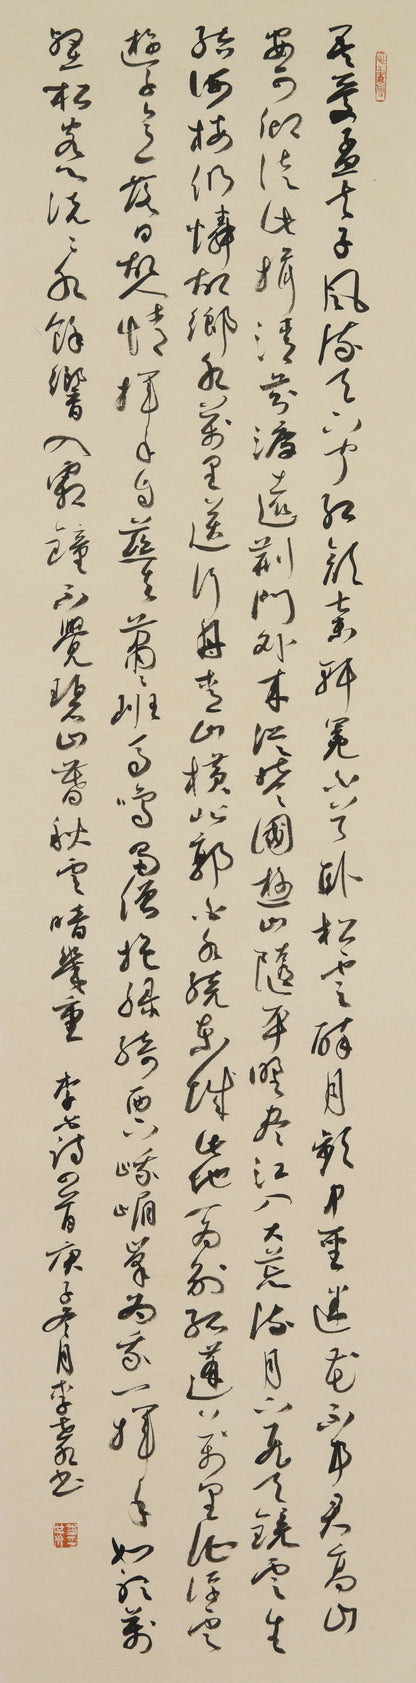 吾愛孟夫子風流天下聞紅顏棄軒冕白首臥松雲醉月頻中聖迷花不事君高山
安可仰從此揖清芬渡遠荊門外來從楚國遊山隨平野盡江入大荒流月下飛天鏡雲生
結海樓仍憐故鄉水萬里送行舟青山橫北郭白水繞東城此地一為別孤蓬萬里征浮雲
遊子意落日故人情揮手自茲去蕭蕭班馬鳴蜀僧抱綠綺西下峨嵋峯為我一揮手如聽萬
壑松客心洗流水餘響入霜鐘不覺碧山暮秋雲暗幾重 李白詩四首庚子冬月李書